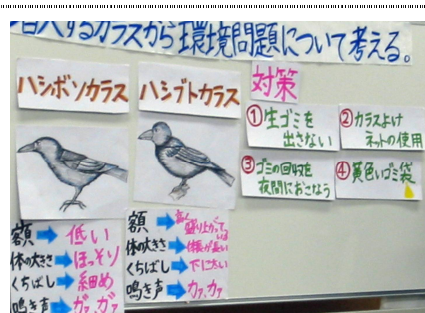 するカラスから環境問題について考える。
ハシボソカラス
ハシブトカラス
対策
①生ゴミを
出さない
②カラスよけ
ネットの使用
③ゴミの回収を
夜間におこなう
④黄色いゴミ袋
額→低い
体の大きさ→ほっそり
くちばし→細め
鳴き声→ガァ、ガァ
額→高く
盛り上がって
いる
体の大きさ→体長が長い
くちばし→下に
鳴き声→カァ、カァ